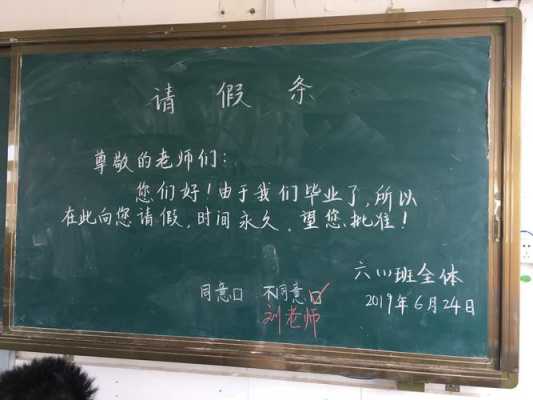 请假条
尊敬的老师们：
您们好！由于我们毕业了，所以
在此向您请假，时间永久，望您批准！
六(1)班全体
同意口 不同意口✓
2019年6月24日
刘老师